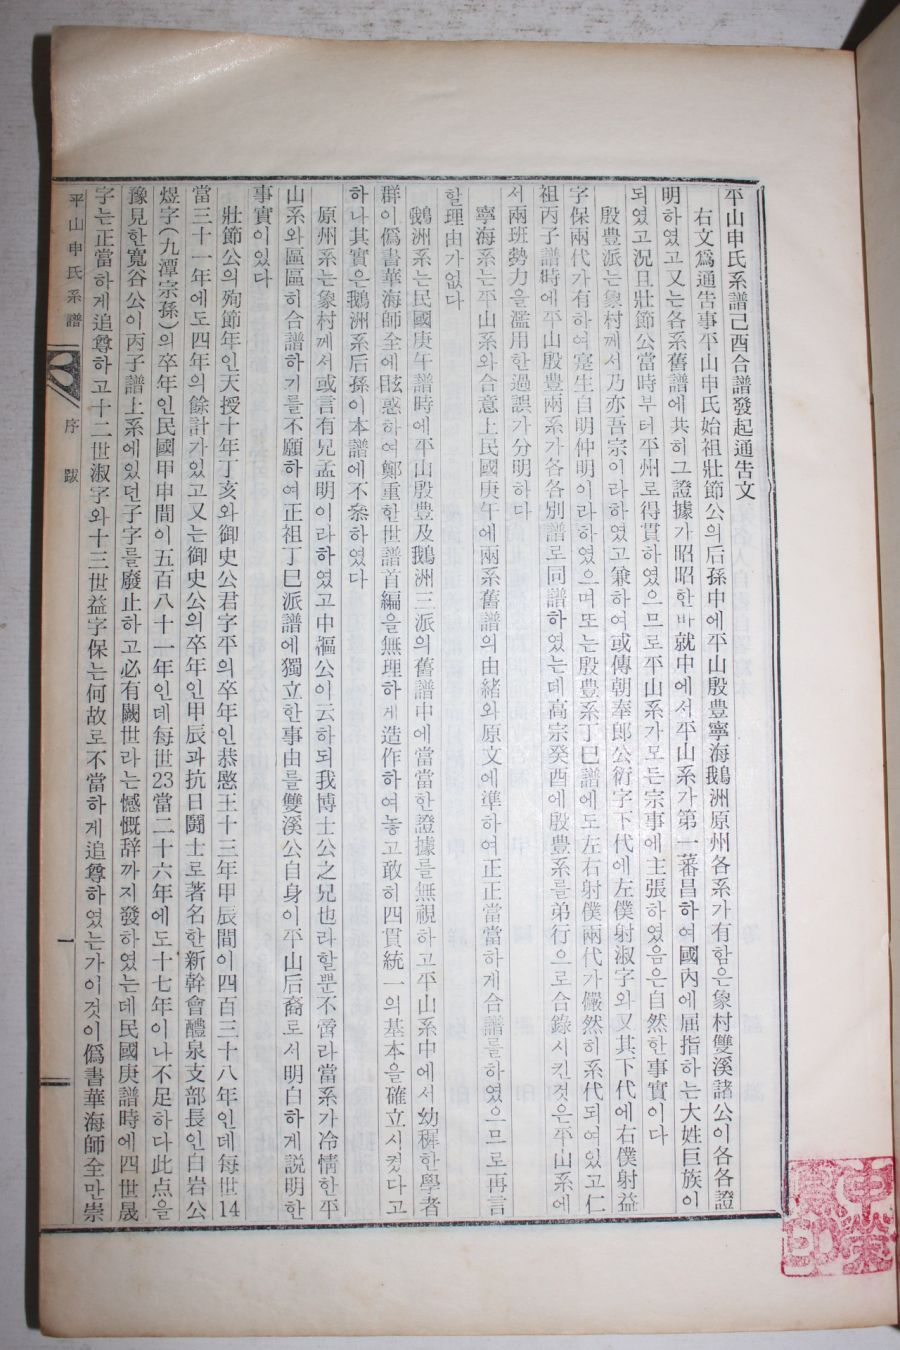 平山申氏系譜己酉合譜發起通告文
右文爲通告事平山申氏始祖壯節公의后孫中에平山殷豊寧海鵝洲原州各系가有함은象村雙溪諸公이各各證
明하였고又는各系舊譜에共히그證據가昭昭한바就中에서平山系가第一蕃昌하여國內에屈指하는大姓巨族이
되였고況且壯節公當時부터平州로得貫하였으므로平山系가모든宗事에主張하였음은自然한事實이다
殷豊派는象村께서乃亦吾宗이라하였고兼하여或傳朝奉郎公衍字下代에左僕射淑字와又其下代에右僕射益
字保兩代가有하여寔生自明仲明이라하였으며또는殷豊系丁巳譜에도左右射僕兩代가儼然히系代되여있고仁
祖丙子譜時에平山殷豊兩系가各各別譜로同譜하였는데高宗癸酉에殷豊系를弟行으로合錄시킨것은平山系에
서兩班勢力을濫用한過誤가分明하다
寧海系는平山系와合意上民國庚午에兩系舊譜의由緖와原文에準하여正正當當하게合譜를하였으므로再言
할理由가없다
鵝洲系는民國庚午譜時에平山殷豊及鵝洲三派의舊譜中에當當한證據를無視하고平山系中에서幼穉한學者
群이僞書華海師全에眩惑하여鄭重한世譜首編을無理하게造作하여놓고敢히四貫統一의基本을確立시켰다고
하나其實은鵝洲系后孫이本譜에不叅하였다
原州系는象村께서或言有兄孟明이라하였고中樞公이云하되我博士公之兄也라할뿐不啻라當系가冷情한平
山系와區區히合譜하기를不願하여正祖丁巳派譜에獨立한事由를雙溪公自身이平山后裔로서明白하게説明한
事實이있다
壯節公의殉節年인天授十年丁亥와御史公君字平의卒年인恭愍王十三年甲辰間이四百三十八年인데每世14
當三十一年에도四年의餘計가있고又는御史公의卒年인甲辰과抗日鬪士로著名한新幹會醴泉支部長인白岩公
煜字(九潭宗孫)의卒年인民國甲申間이五百八十一年인데每世23當二十六年에도十七年이나不足하다此点을
豫見한寬谷公이丙子譜上系에있던子字를廢止하고必有闕世라는憾慨辞까지發하였는데民國庚譜時에四世晟
字는正當하게追尊하고十二世淑字와十三世益字保는何故로不當하게追尊하였는가이것이僞書華海師全만崇
平山申氏系譜
序 跋
一